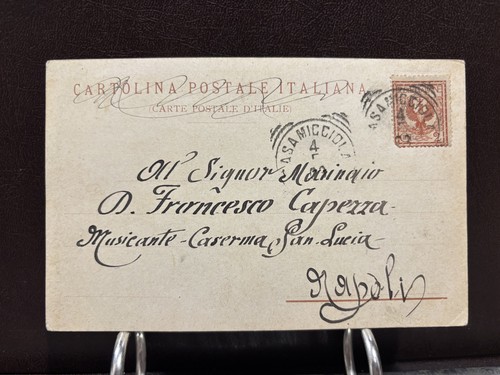 CARTOLINA POSTALE ITALIANA
(CARTE POSTALE D'ITALIE)
CASAMICCIOLA
4
ASAMICCIOL
4
Al Signor Marinaio
D. Francesco Capezza
Musicante-Caserma San-Lucia
Napoli